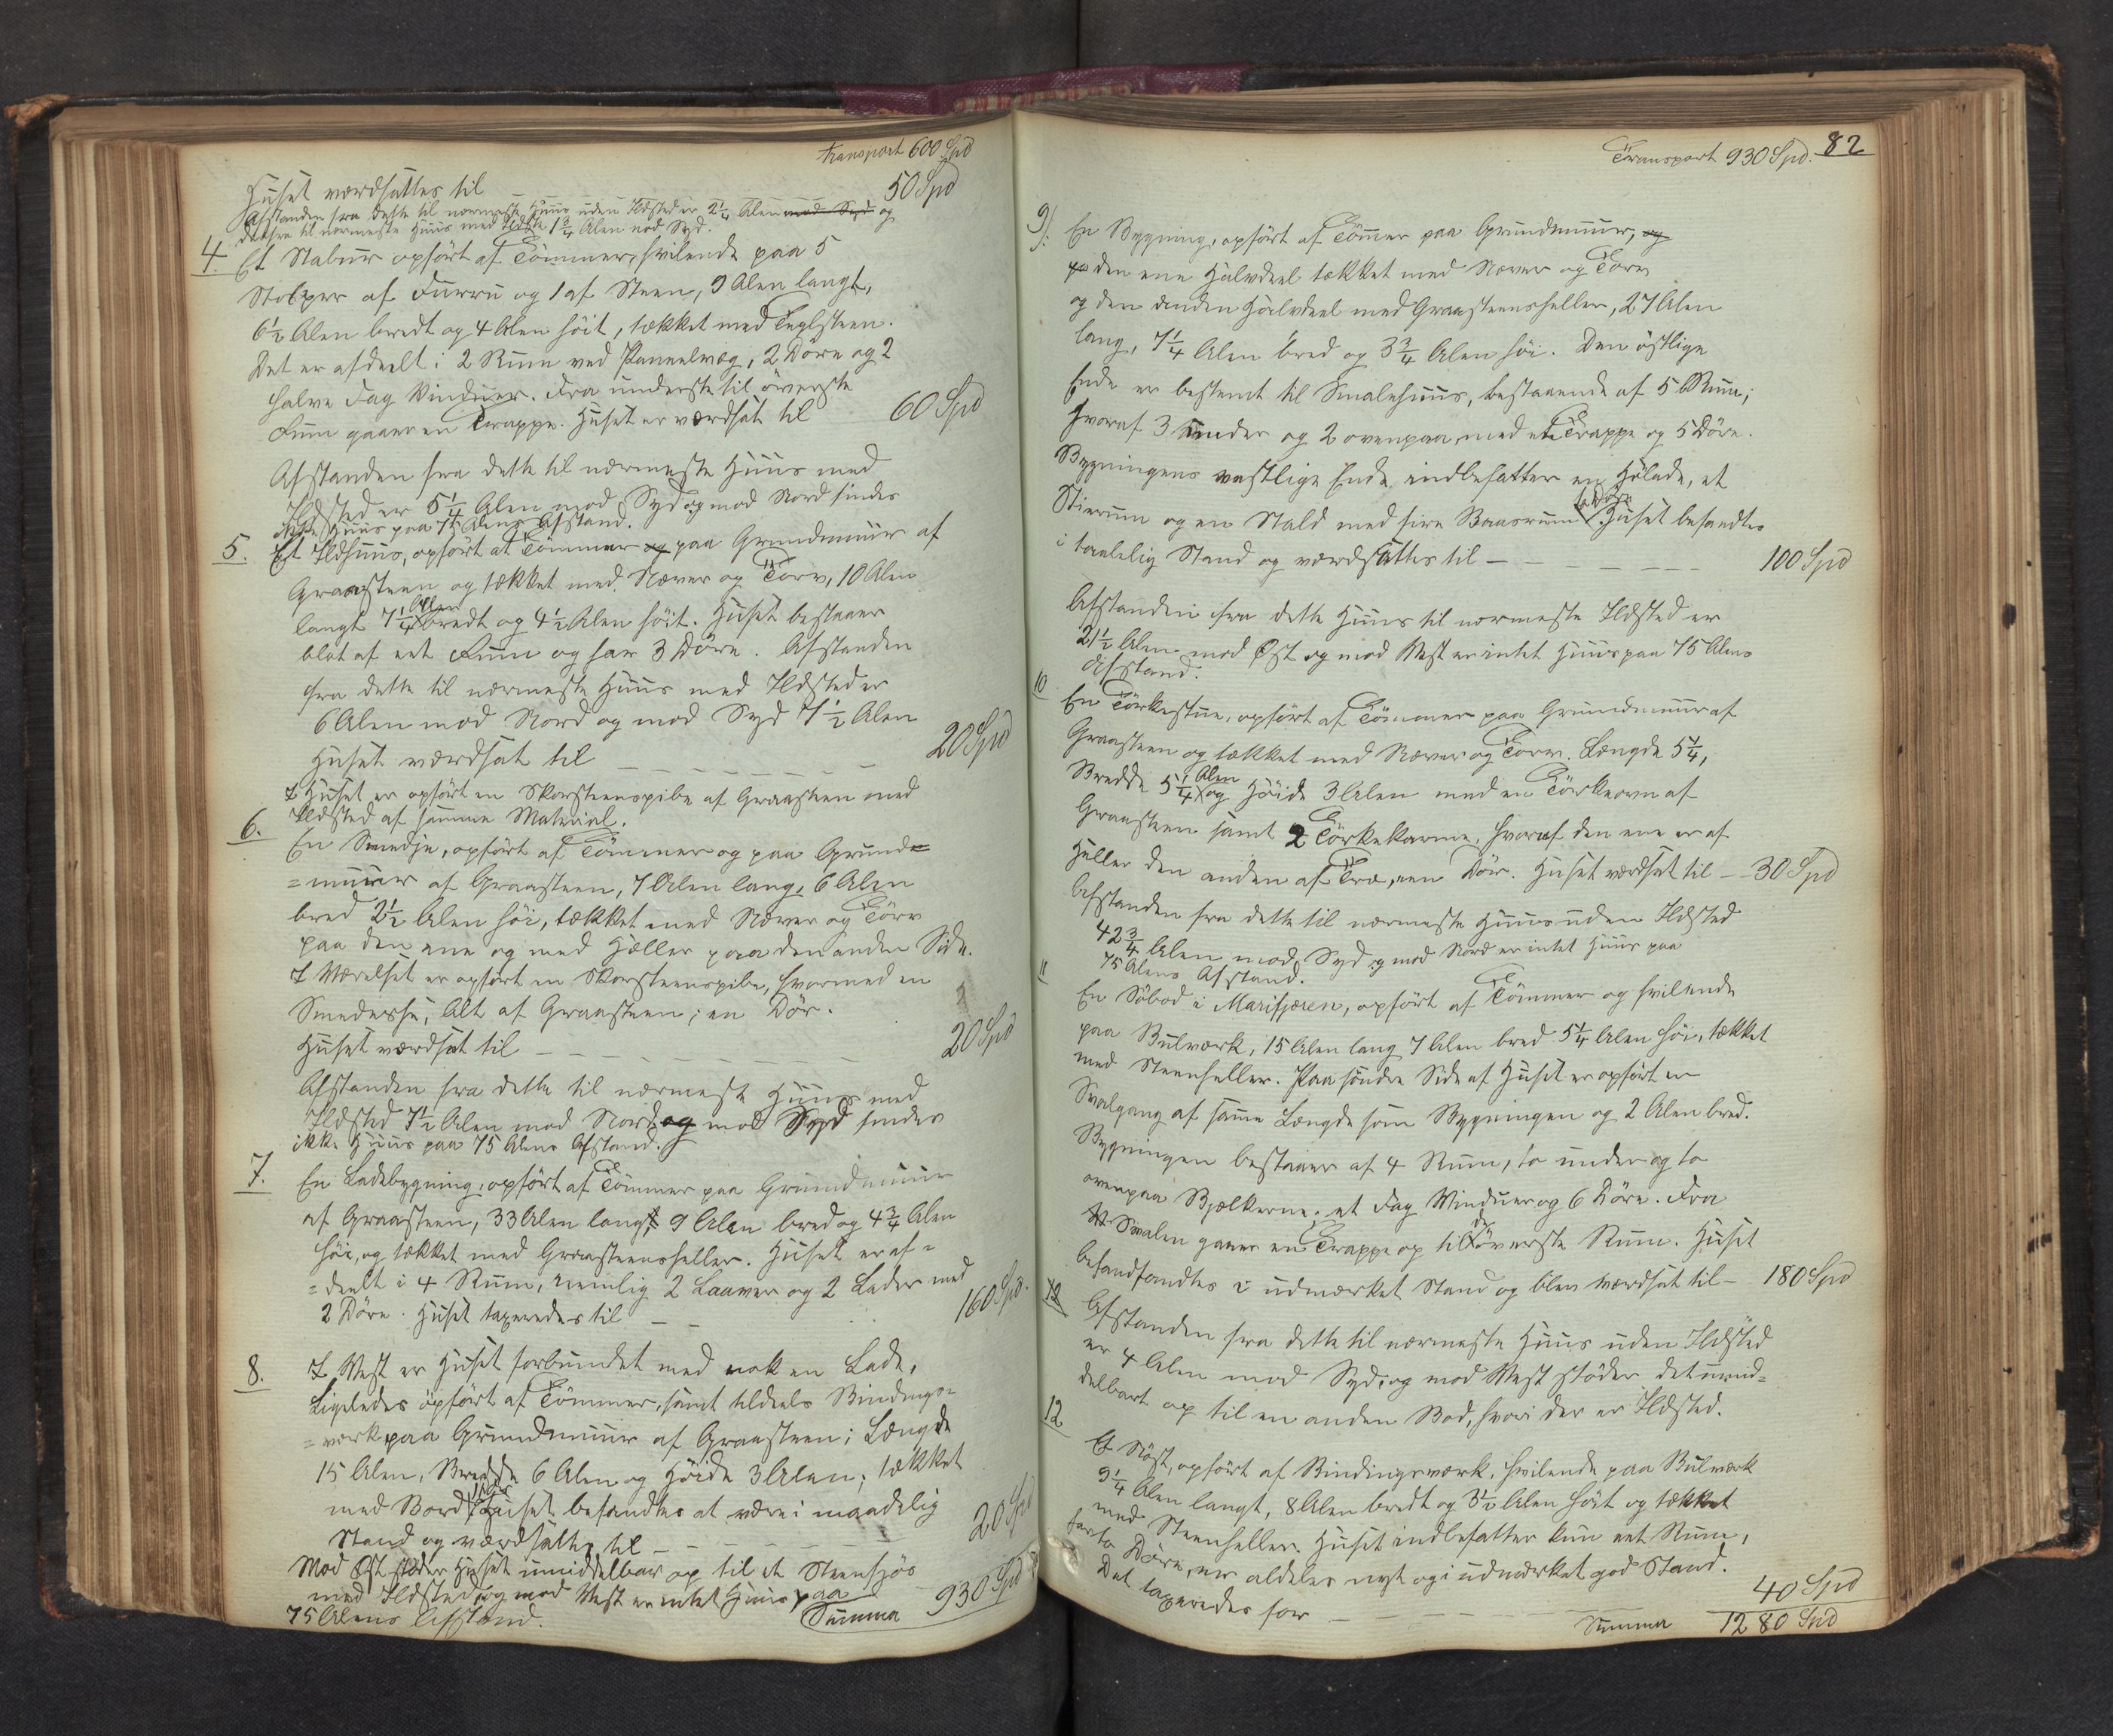 Transport 600 Spd
Huset værdsattes til 50 Spd
Afstanden fra dette til nærmeste Huus uden Ildsted er 2 1/4 Alen mod Syd og
dette til nærmeste Huus med Ildsted 1 3/4 Alen mod Syd.
4. Et Stabuur opført af Tömmer, hvilende paa 5
Stolper af Furru og 1 af Steen, 9 Alen langt,
6 1/2 Alen bredt og 4 Alen höit, tækket med Teglsteen.
Det er afdeelt i 2 Rum ved Paneelvæg, 2 Döre og 2
halve Fag Vinduer. Fra underste til överste
Rum gaaer en Trappe. Huset er værdsat til 60 Spd
Afstanden fra dette til nærmeste Huus med
Ildsted er 5 1/4 Alen mod Syd og mod Nord findes
ikke Huus paa 75 Alens Afstand.
5. Et Ildhuus, opført af Tömmer og paa Grundmuur af
Graasteen og tækket med Næver og Torv, 10 Alen
langt 7 1/4 Alen bredt og 4 1/2 Alen höit. Huset bestaaer
blot af eet Rum og har 3 Döre. Afstanden
fra dette til nærmeste Huus med Ildsted er
6 Alen mod Nord og mod Syd 7 1/2 Alen
Huset værdsat til 20 Spd
I Huset er opført en Skorsteenspibe af Graasteen med
Ildsted af samme Material.
6. En Smedje, opført af Tömmer og paa Grund=
=muur af Graasteen, 7 Alen lang, 6 Alen
bred 2 1/2 Alen höi, tækket med Næver og Törv
paa den ene og med Heller paa den anden Side.
I Værelset er opført en Skorsteenspibe, hvormed en
Smedesse, Alt af Graasteen; en Dör.
Huset værdsat til 20 Spd
Afstanden fra dette til nærmeste Huus med
Ildsted 7 1/2 Alen mod Nord og mod Syd findes
ikke Huus paa 75 Alens Afstand.
7. En Ladebygning, opført af Tömmer paa Grundmuur
af Graasteen, 33 Alen lang, 9 Alen bred og 4 3/4 Alen
höi, og tækket med Graasteensheller. Huset er af=
=deelt i 4 Rum, nemlig 2 Laaver og 2 Lader med
2 Döre. Huset taxeredes til 160 Spd.
8. I Vest er Huset forbundet med nok en Lade,
Ligeledes opført af Tömmer, samt tildeels Bindings=
=værk paa Grundmuur af Graasteen; Længde
15 Alen, Bredde 6 Alen og Höide 3 Alen; tækket
med Bord. Huset befandtes at være i maadelig
Stand og værdsattes til 20 Spd
Mod Öst støder Huset umiddelbar op til et Steenfjös
med Ildsted og mod Vest er intet Huus paa
75 Alens Afstand. Summa 930 Spd
Transport 930 Spd. 82
9/. En Bygning, opført af Tömmer paa Grundmuur, og
paa den ene Halvdeel tækket med Næver og Torv
og den anden Halvdeel med Graasteensheller, 27 Alen
lang, 7 1/4 Alen bred og 3 3/4 Alen höi. Den östlige
Ende er bestemt til Smalehuus, bestaaende af 5 Rum;
hvoraf 3 under og 2 ovenpaa, med en Trappe og 5 Döre.
Bygningens vestlige Ende indbefatter en Hölade, et
Stierum og en Stald med fire Baasrum. Huset befandtes
i taalelig Stand og værdsattes til 100 Spd
Afstanden fra dette Huus til nærmeste Ildsted er
21 1/2 Alen mod Øst og mod Vest er intet Huus paa 75 Alens
Afstand.
10 En Törkestue, opført af Tömmer paa Grundmuur af
Graasteen og tækket med Næver og Torv. Længde 5 1/4,
Bredde 5 1/4 Alen og Höide 3 Alen med en Törkeovn af
Graasteen samt 2 Törkekarme, hvoraf den ene er af
Heller den anden af Træ, een Dör. Huset værdsat til 30 Spd
Afstanden fra dette til nærmeste Huus uden Ildsted
42 3/4 Alen mod Syd og mod Nord er intet Huus paa
75 Alens Afstand.
11 En Söbod i Marifjæren, opført af Tömmer og hvilende
paa Bulværk, 15 Alen lang 7 Alen bred 5 1/4 Alen höi, tækket
med Steenheller. Paa söndre Side af Huset er opført en
Svalgang af samme Længde som Bygningen og 2 Alen bred.
Bygningen bestaaer af 4 Rum, to under og to
ovenpaa Bjelkerne; et Fag Vinduer og 6 Döre. Fra
Svalen gaaer en Trappe op til de överste Rum. Huset
befandfandtes i udmærket Stand og blev værdsat til 180 Spd
12 Afstanden fra dette til nærmeste Huus uden Ildsted
er 4 Alen mod Syd, og mod Vest stöder det umid=
delbart op til en anden Bod, hvori der er Ildsted.
12 Et Nöst, opført af Bindingsværk, hvilende paa Bulværk
9 1/4 Alen langt, 8 Alen bredt og 3 1/2 Alen höit og tækket
med Steenheller. Huset indbefatter kun eet Rum,
har to Döre, er aldeles nyt og i udmærket god Stand.
Det taxeredes for 40 Spd
Summa 1280 Spd